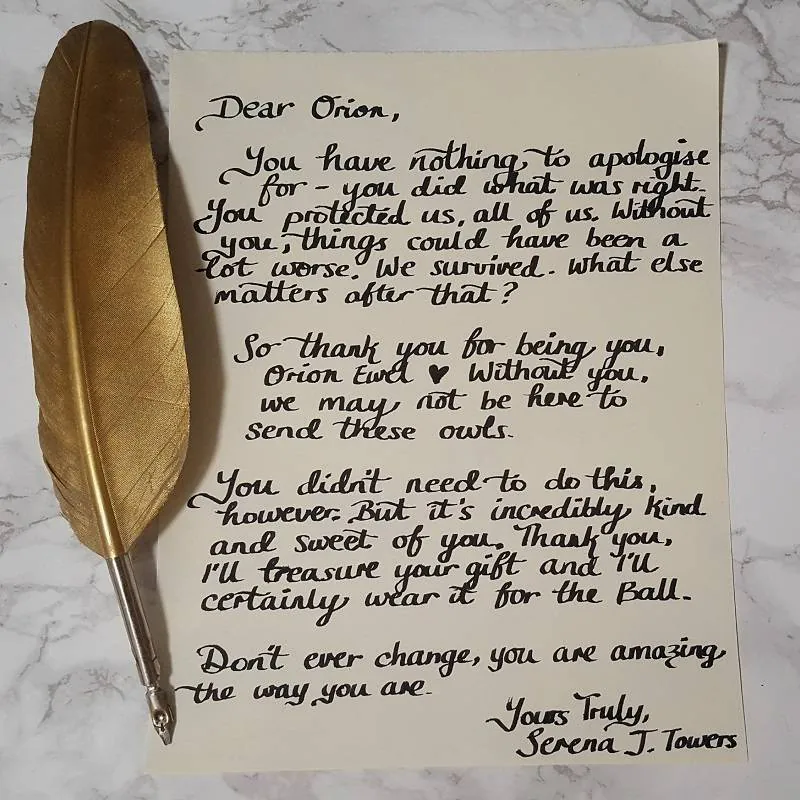 Dear Orion,
You have nothing to apologise
for - you did what was right.
You protected us, all of us. Without
you, things could have been a
lot worse. We survived. What else
matters after that?
So thank you for being you,
Orion Ewel ♥ Without you,
we may not be here to
send these owls.
You didn't need to do this,
however. But it's incredibly kind
and sweet of you. Thank you,
I'll treasure your gift and I'll
certainly wear it for the Ball.
Don't ever change, you are amazing
the way you are.
Yours Truly,
Serena J. Towers